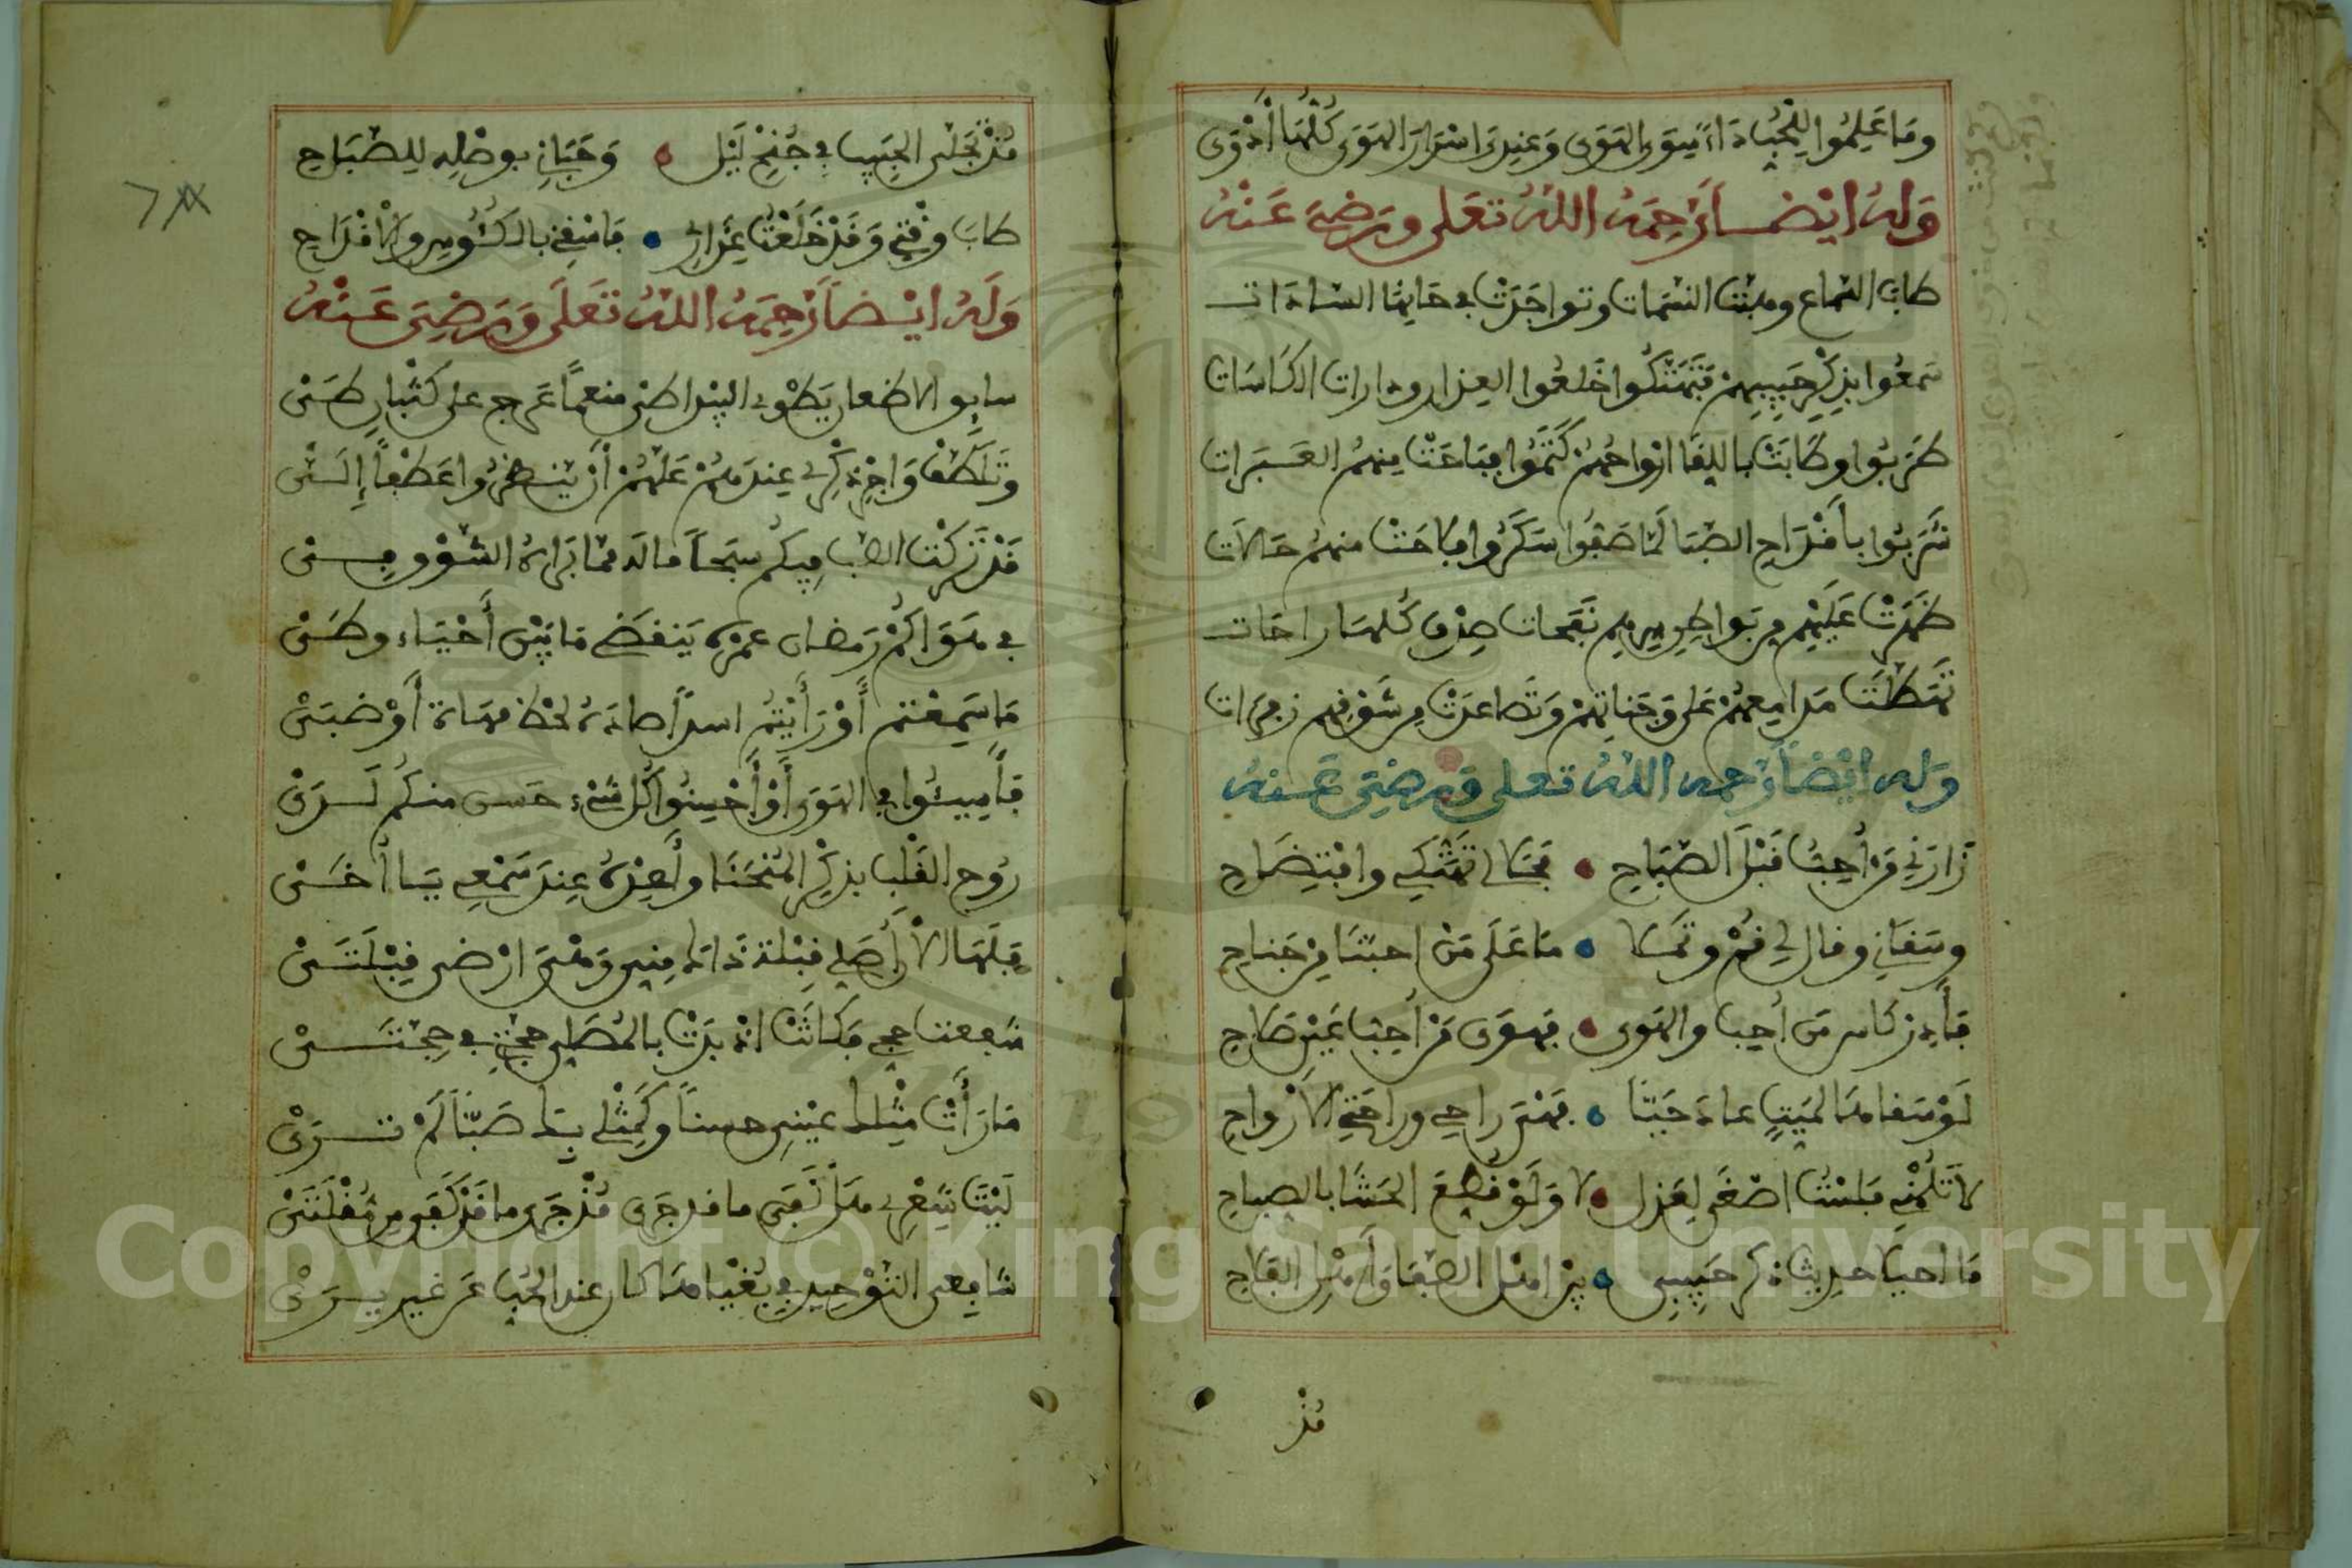 وَمَا عَلِمُوا لِلْحُبِّ دَاءً سِوَى الهَوَى وَعِنْدِي اسْرَارُ الهَوَى كُلُّهَا أَدْوَى
وَلهُ ايْضاً رَحِمَهُ اللهُ تعَلى ورَضِيَ عَنْهُ
طابَ السَّماع وهبّتْ النسَمات وتواجَدَتْ في حَانِهَا السادَات
سَمعُوا بذِكْرِ حَبِيبِهِمْ فَتَهَتَّكُوا خَلعُوا العِذار ودارات الكَاسَات
طَرِبُوا وطَابَتْ باللِقَا ارْواحُهُمْ كَتَمُوا فبَاحَتْ مِنهمُ العَبَرَات
شَرِبُوا بأَقْدَاحِ الصَّبَا لمّا صَفُوا سَكَرُوا فبَاحَتْ منهمُ حَالَات
ظَهَرَتْ عَلَيْهِم مِن بَواطِن سِرِهِم نَفَحات صِدْقٍ كُلهَا راحَات
هَطَلَتْ مَدامِعهُمْ عَلى وَجَناتِهِمْ وَتَصاعدَتْ مِن شَوْقِهِم زفرَات
وَله ايْضاً رَحمه اللهُ تعلى وَرضِيَ عَنهُ
زَارَنِي مَنْ أُحِبُّ قَبْلَ الصَّبَاحِ فَحَلَا لي تَهَتُّكِي وافْتِضَاحِ
وسَقَانِي وقال لي قُمْ وتَمَلّا مَا عَلَى مَنْ احبّنَا مِنْ جَناحِ
فَأَدِرْ كَاس مَن أُحِبّ والهَوى فهوَى مَنْ أُحِبّ غَيْر صَاحِ
لَوْ سَقَاهَا لمَيّتٍ عادَ حَيّاً فهْيَ رَاحِي وراحَةُ الأرْواحِ
لَا تَلُمْنِي فَلسْتُ اصْغَى لِعَذل لا وَلَوْ قُطِّعَ الحَشَا بالصِفاحِ
مَا احيْلا حدِيث ذكر حَبِيبِي بَيْن اهْل الصّفَا وَأَهْل الفَلَاحِ
مُذْ
مُذْ تَجَلّى الحَبِيب في جُنْحِ لَيْل وَحَبَانِي بوَصْلِهِ لِلصّبَاحِ
طابَ وقْتِي وَقَدْ خَلَعْتُ عِذَارِي فاسْقِنِي بالكُئُوس والأقْدَاحِ
وَلَهُ ايْضاً رَحِمَهُ اللهُ تَعَلَى وَرَضِيَ عَنْهُ
سايِق الاظعان يَطْوِي البِيْد اطيْ منعماً عَرِّج على كُثْبانِ طَيْ
وتَلَطَّفْ وَاجْرِ ذِكْرِي عِندَهُمْ عَلّهُمْ أَنْ يَنْظُرُوا عَطْفاً إِلَيْ
قَدْ تَرَكْتُ الصّبّ فيكُم شبَحاً مَا لَه ممّا بَرَاهُ الشوْق فِيْ
في هَوَاكُمْ رَمَضان عمْرُهُ يَنقَضِي مَا بَيْن أَحْيَاء وطَيْ
مَا سَمِعْتم أَوْ رَأَيْتُم اسداً صادَهُ لحْظ مهَاة أَوْ ضبَيْ
فَأَسِيئُوا في الهَوَى أَوْ أَحْسِنُوا كُلّ شَيْء حَسن منكُم لَدَيْ
رَوِّح القَلْب بذكِرِ المُنْحَنَا وأَعِدْهُ عِندَ سَمْعِي يَا أُخَيْ
فَلَهَا الآن أُصَلِّي قَبِلَتْ ذاكَ مِنِّي وَهْيَ ارْضى قِبْلَتَيْ
شفعت حجي فكَانَتْ اذ بَدَتْ بالمُصَلّى حجّتِي في حِجّتَيْ
مَا رَأَتْ مِثْلك عَيْنِي حسناً وكَمِثْلِي بِك صَبّاً لَمْ تَرَيْ
لَيْتَ شِعْرِي هَلْ كَفَى ما قد جَرى مُذْ جَرى ما قَدْ كَفَى مِن مُقْلَتَيْ
شافِعِي التَّوْحِيد في بُقْيَاهَا كان عند الحُبّ عَن غير يَدَيْ